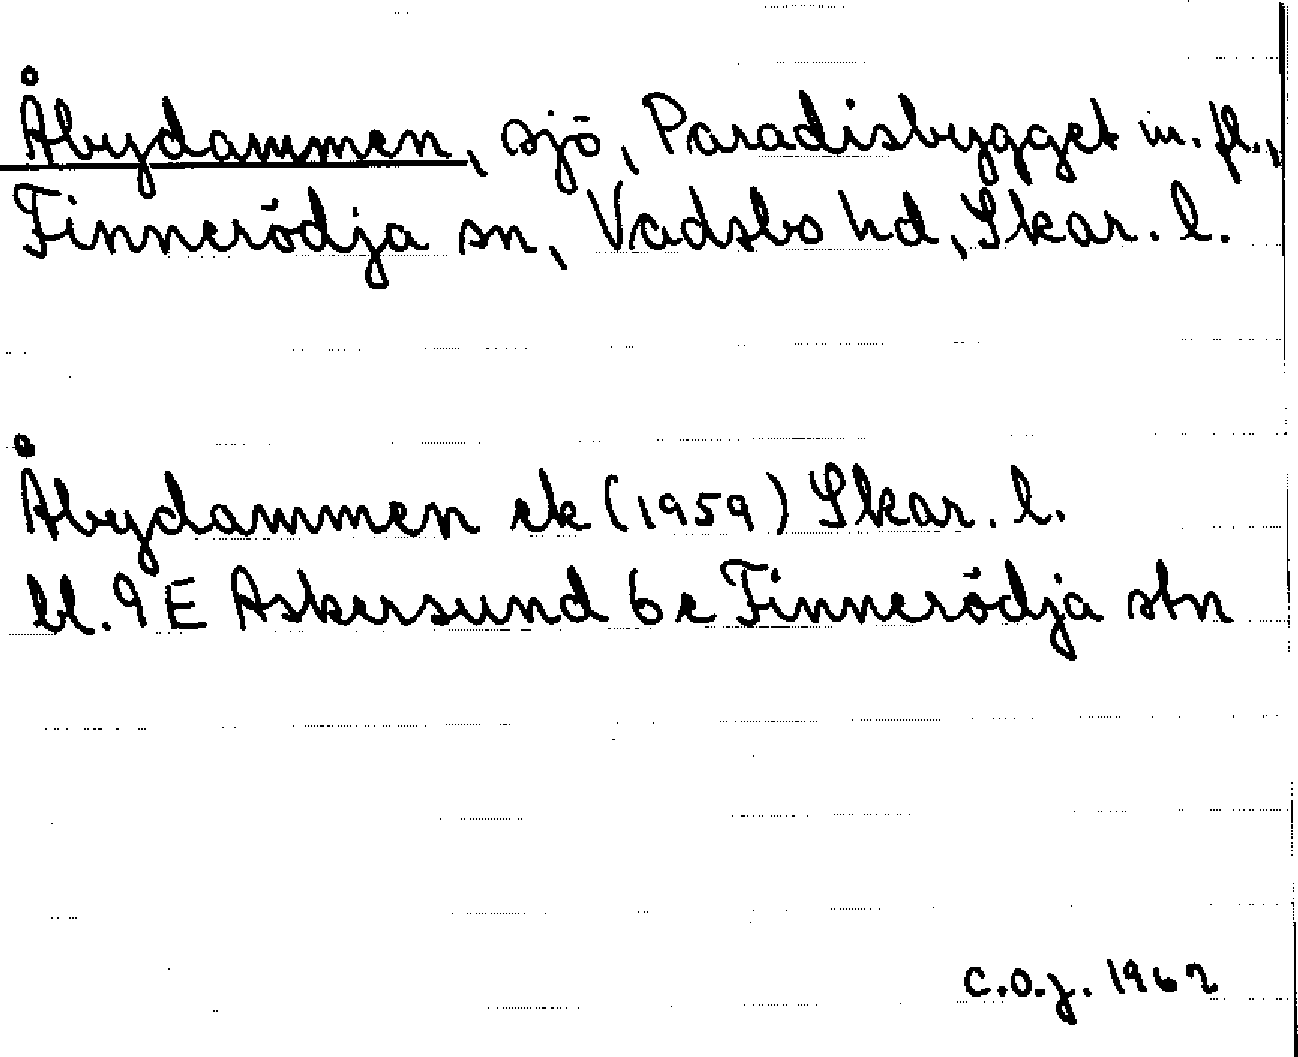 Åbydammen, sjö, Paradisbygget m. fl.,
Finnerödja sn, Vadsbo hd, Skar. l.
Åbydammen ek (1959) Skar. l.
bl. 9 E Askersund 6 c Finnerödja stn
C.O.J. 1962